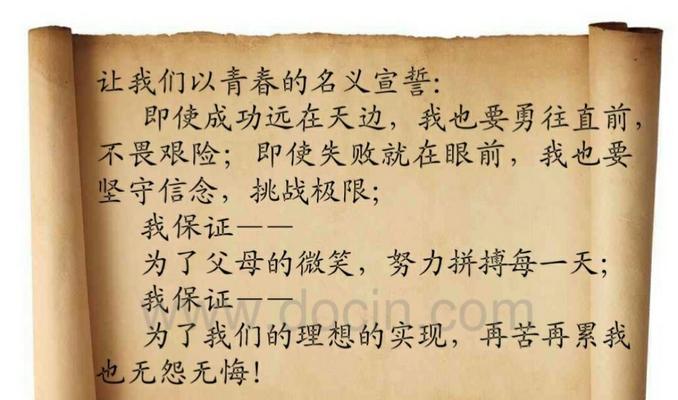 让我们以青春的名义宣誓：
即使成功远在天边，我也要勇往直前，
不畏艰险；即使失败就在眼前，我也要
坚守信念，挑战极限；
我保证——
为了父母的微笑，努力拼搏每一天；
我保证——
www.docin.com
为了我们的理想的实现，再苦再累我
也无怨无悔！